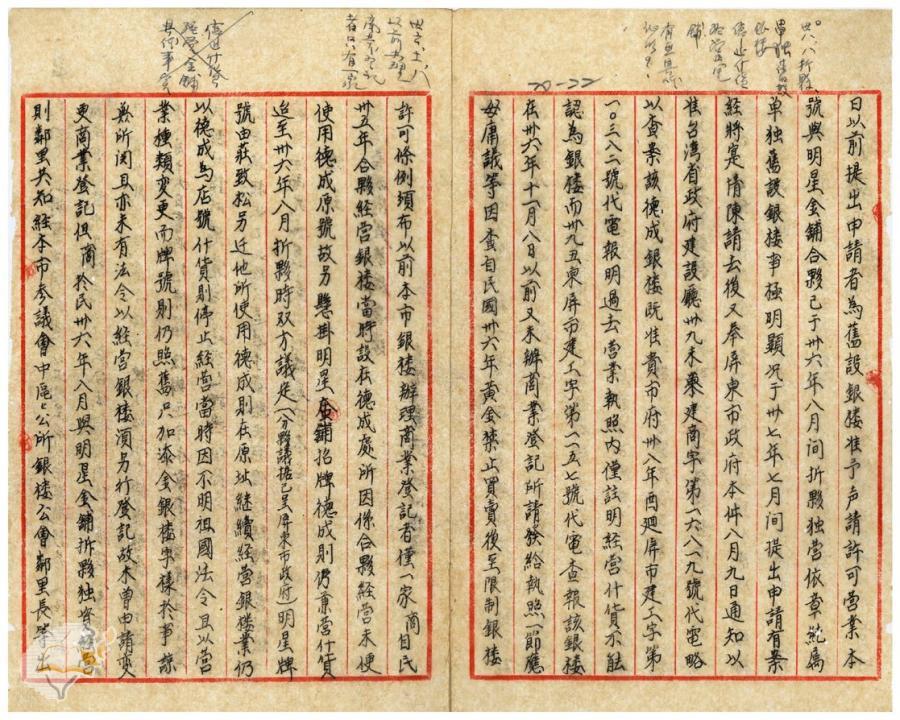 日以前提出申請者為舊設銀楼准予声請許可营業本
號與明星金舖合夥已于卅六年八月间折夥独营依章範為
单独舊設銀楼事極明顯况于卅七年七月间提出申請有案
經將寔情陳請去後又奉屏東市政府本件八月九日通知以
准台湾省政府建設廳卅九未東建商字第一六八一九號代電略
以查案該德成銀楼既准貴市府卅八年酉廻屏市建工字第
一〇三八二號代電報明過去营業執照内僅註明經营什貨不能
認為銀楼而卅九丑東屏市建工字第一一五七號代電查報該銀楼
在卅六年十一月八日以前又未辦商業登記所請發給執照一節應
毋庸議等因查自民國卅六年黄金禁止買賣後至限制銀楼
許可條例頒布以前本市銀楼辦理商業登記者僅一家 商自民
卅五年合夥經营銀楼當時設在德成處所因係合夥經营未便
使用德成原號故另懸掛明星金舖招牌德成則仍兼营什貨
迨至卅六年八月折夥時双方議定(分夥議據已呈屏東市政府)明星牌
號由莊致松另迁他所使用德成則在原址継續經营銀楼業仍
以德成為店號什貨則停止經营當時因不明祖國法令且以营
業種類变更而牌號則仍照舊只加添金銀楼字樣於事諒
無所関且亦未有法令以經营銀楼須另行登記故未曾申請变
更商業登記但商於民卅六年八月與明星金舖拆夥独資經营
則鄰里共知經本市参議會中區區公所銀楼公會鄰里長等出
20-22